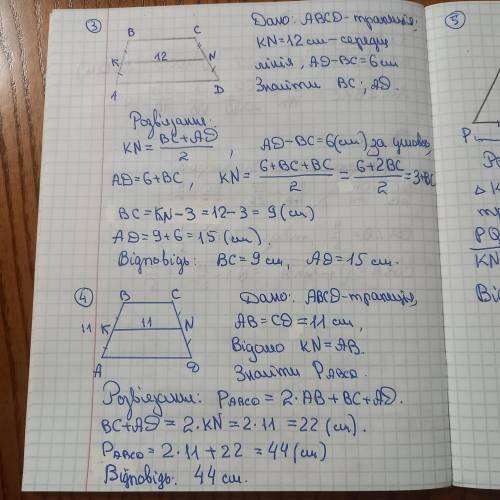 3
B C
K 12 N
A D
Дано: ABCD-трапеція,
KN=12см-середня
лінія, AD-BC=6см
Знайти BC; AD.
Розв'язання:
KN= BC+AD / 2 , AD-BC=6(см) за умовою
AD=6+BC, KN= 6+BC+BC / 2 = 6+2BC / 2 =3+BC
BC=KN-3=12-3=9(см)
AD=9+6=15(см).
Відповідь: BC=9см, AD=15см.
4
B C
11 K 11 N
A D
Дано: ABCD-трапеція,
AB=CD=11см,
Відомо KN=AB.
Знайти PABCD.
Розв'язання: PABCD=2·AB+BC+AD.
BC+AD=2·KN=2·11=22(см).
PABCD=2·11+22=44(см)
Відповідь: 44см.
5
P
Ро
PQ
KN
Від